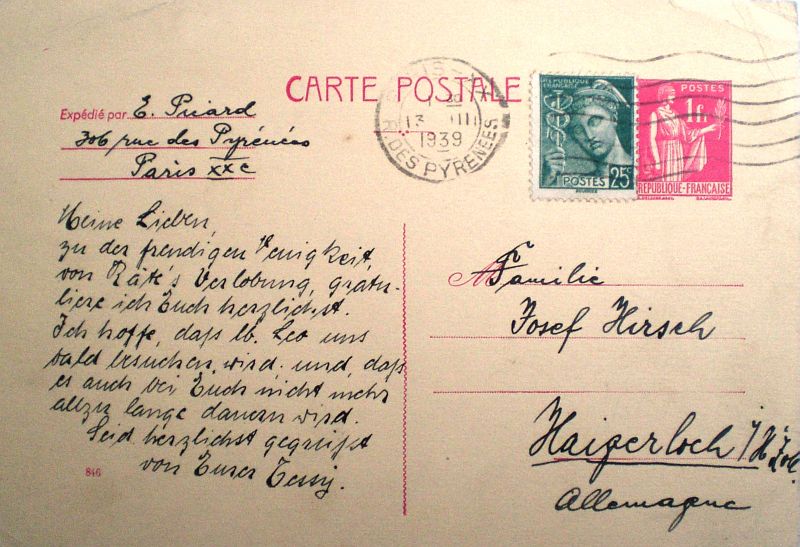 CARTE POSTALE
Expédié par E. Picard
306 rue des Pyrénées
Paris XXe
13 III
1939
R. DES PYRENEES
REPUBLIQUE FRANÇAISE
POSTES 25c
POSTES
1f.
REPUBLIQUE-FRANÇAISE
Meine Lieben,
zu der freudigen Neuigkeit,
von Räk's Verlobung, gratu-
liere ich Euch herzlichst.
Ich hoffe, daß lb. Leo uns
bald besuchen wird und, daß
es auch bei Euch nicht mehr
allzu lange dauern wird.
Seid herzlichst gegrüßt
von Eurer Tessy.
846
A Familie
Josef Hirsch
Haigerloch
Allemagne